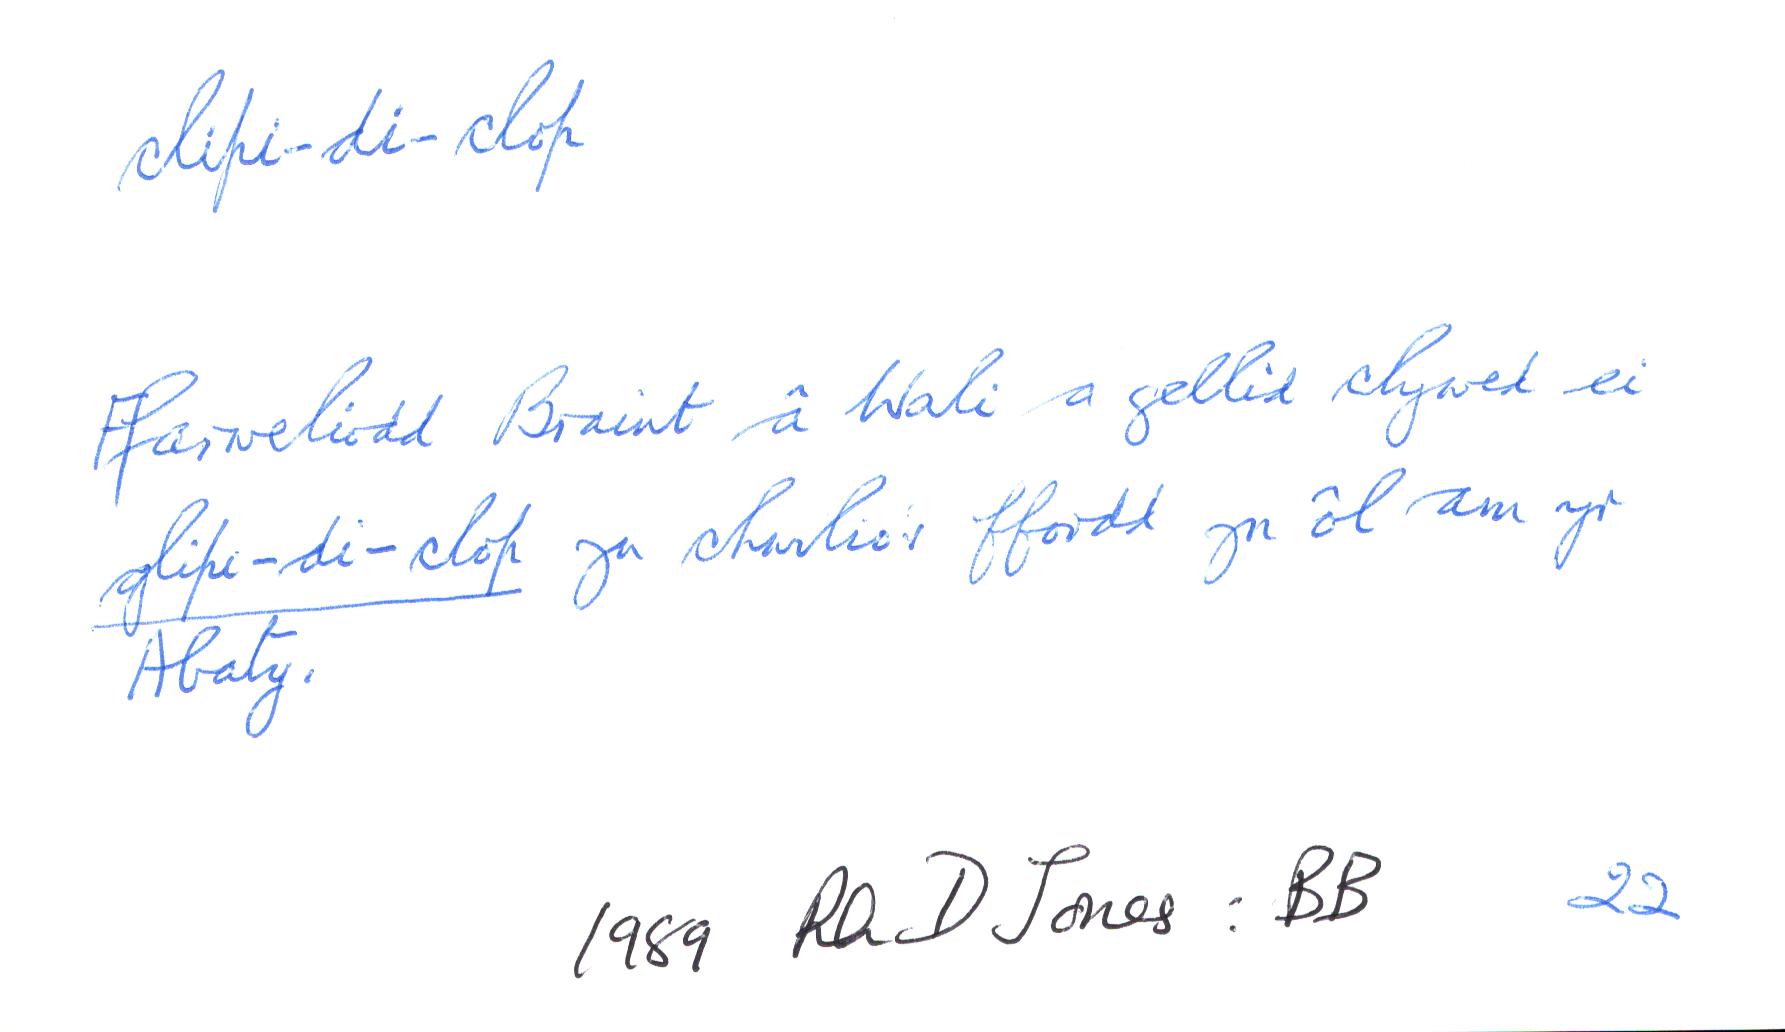 clipi-di-clop
Ffarweliodd Braint â Wali a gellid clywed ei
glipi-di-clop yn charlio'r ffordd yn ôl am yr
Abaty.
1989 Rh D Jones : BB 22